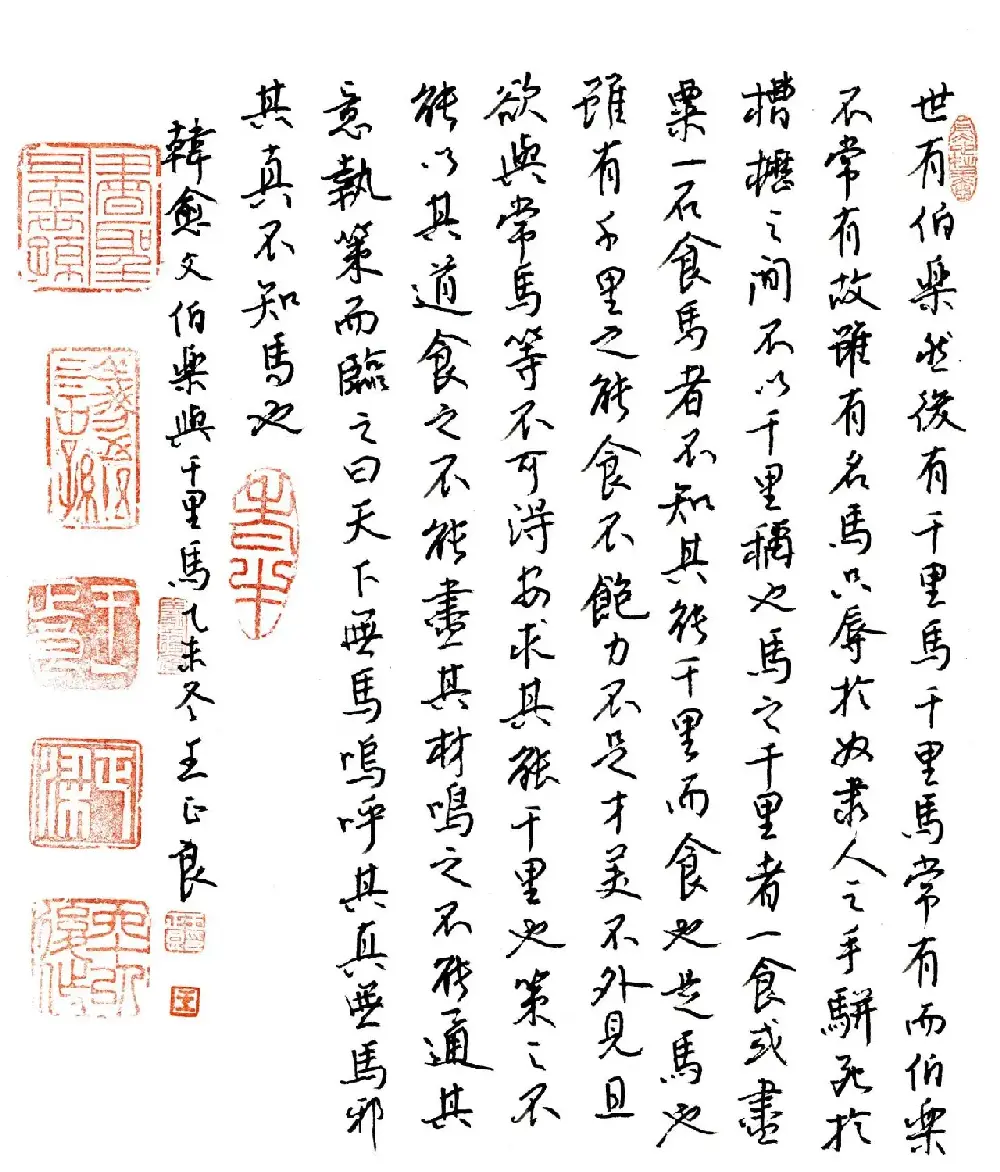 世有伯樂然後有千里馬千里馬常有而伯樂
不常有故雖有名馬只辱於奴隶人之手駢死於
槽櫪之间不以千里稱也馬之千里者一食或盡
粟一石食馬者不知其能千里而食也是馬也
雖有千里之能食不飽力不足才美不外見且
欲與常馬等不可得安求其能千里也策之不
能以其道食之不能盡其材鳴之不能通其
意執策而臨之曰天下無馬嗚呼其真無馬邪
其真不知馬也
韓愈文伯樂與千里馬乙未冬王正良